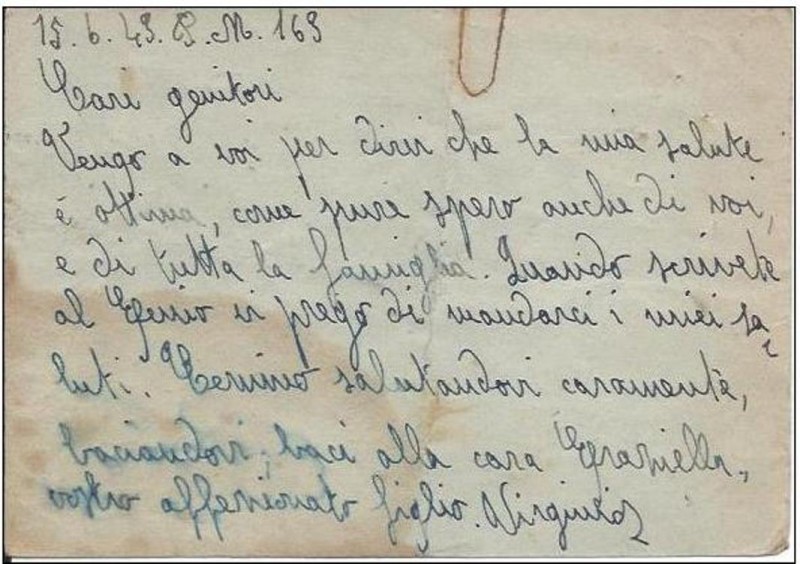 15.6.43. P.M. 163
Cari genitori
Vengo a voi per dirvi che la mia salute
è ottima, come pure spero anche di voi,
e di tutta la famiglia. Quando scrivete
al vi prego di mandarci i miei sa-
luti. Termino salutandovi caramente,
baciandovi, baci alla cara Graziella,
vostro affezionato figlio. Virginio